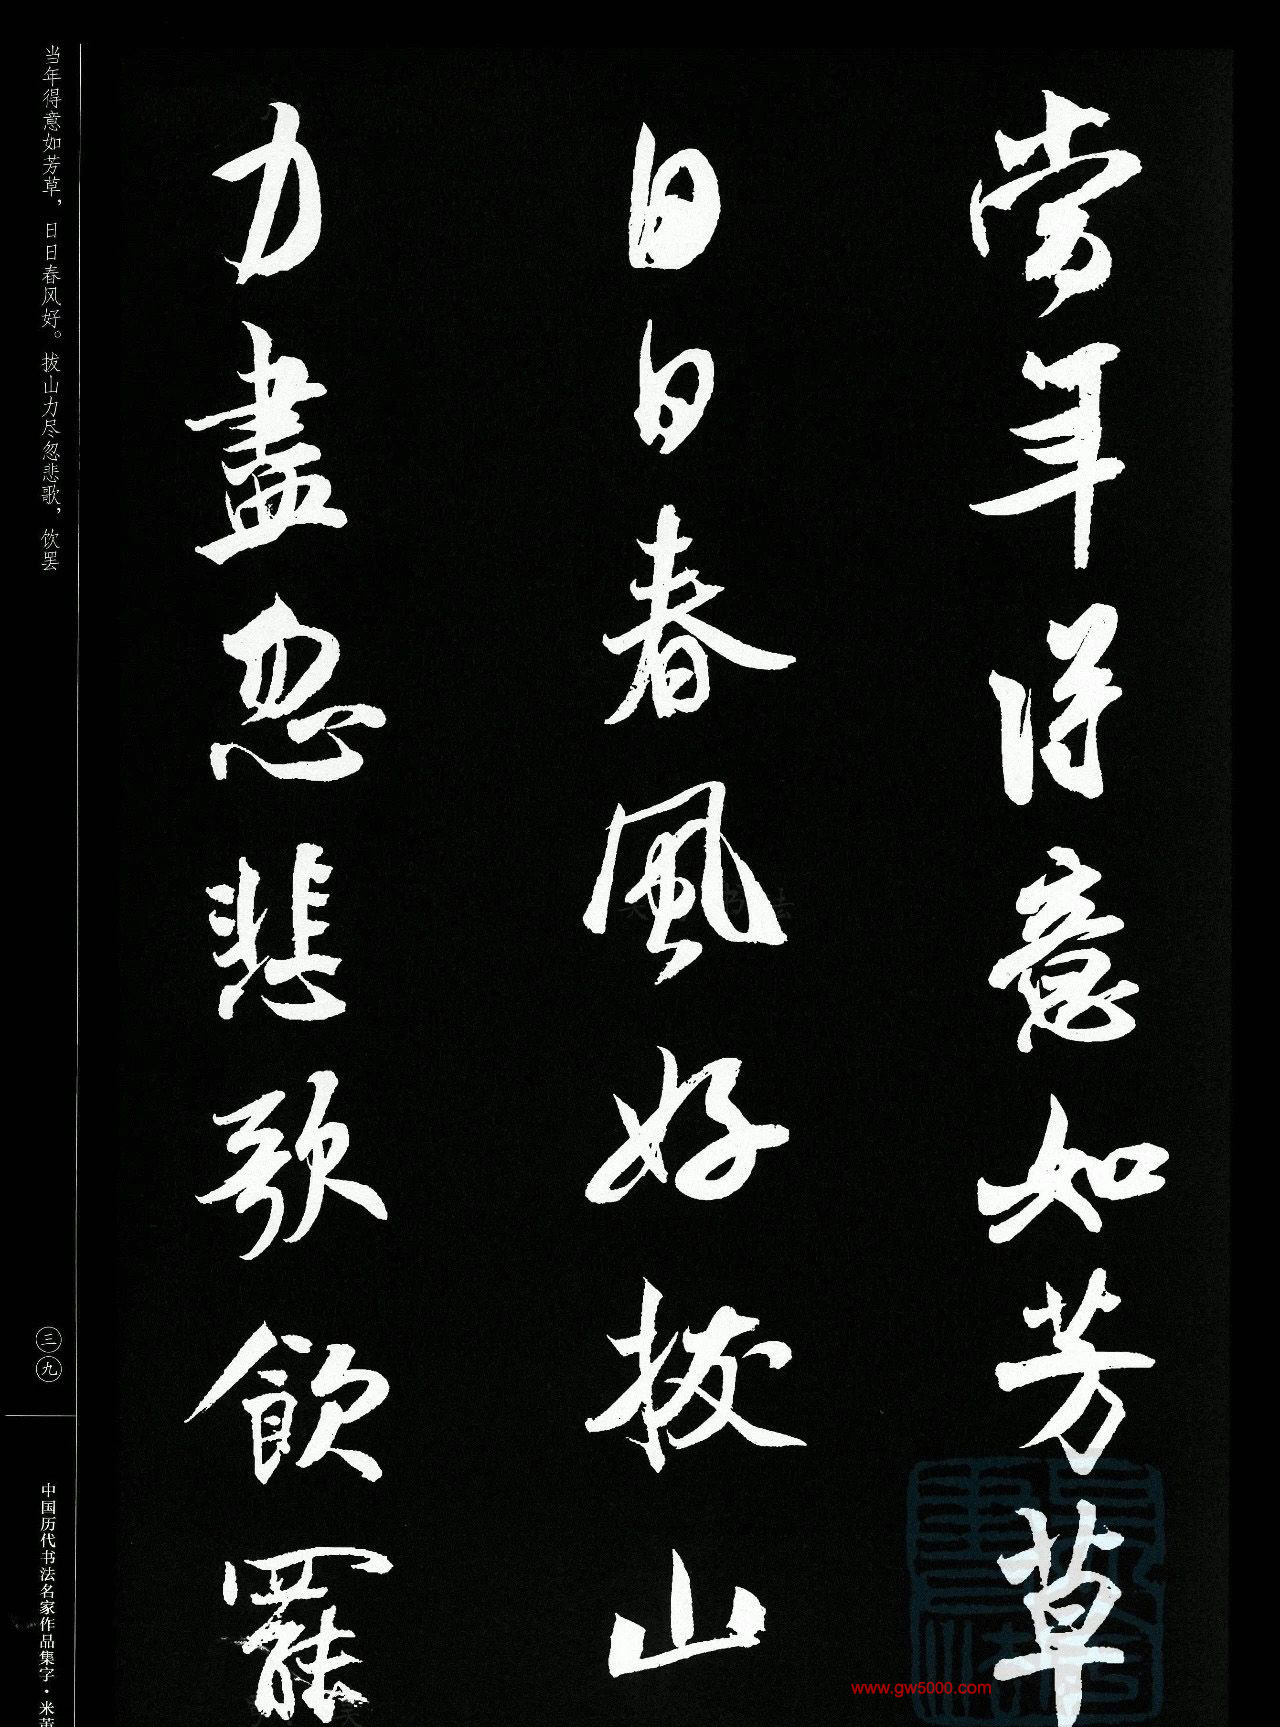 當年得意如芳草
日日春風好拔山
力盡忽悲歌飲罷
当年得意如芳草，日日春风好。拔山力尽忽悲歌，饮罢
三九
中国历代书法名家作品集字·米芾
www.gw5000.com